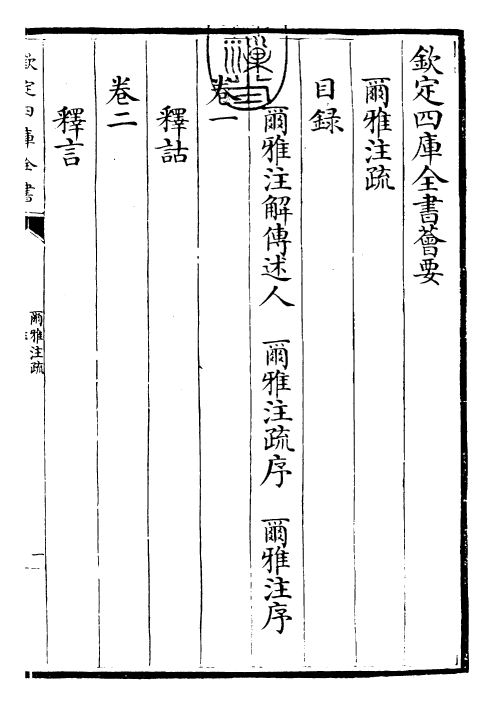 欽定四庫全書薈要
爾雅注疏
目録
爾雅注解傳述人　爾雅注疏序　爾雅注序
卷一
釋詁
卷二
釋言
欽定四庫全書
爾雅注疏
一